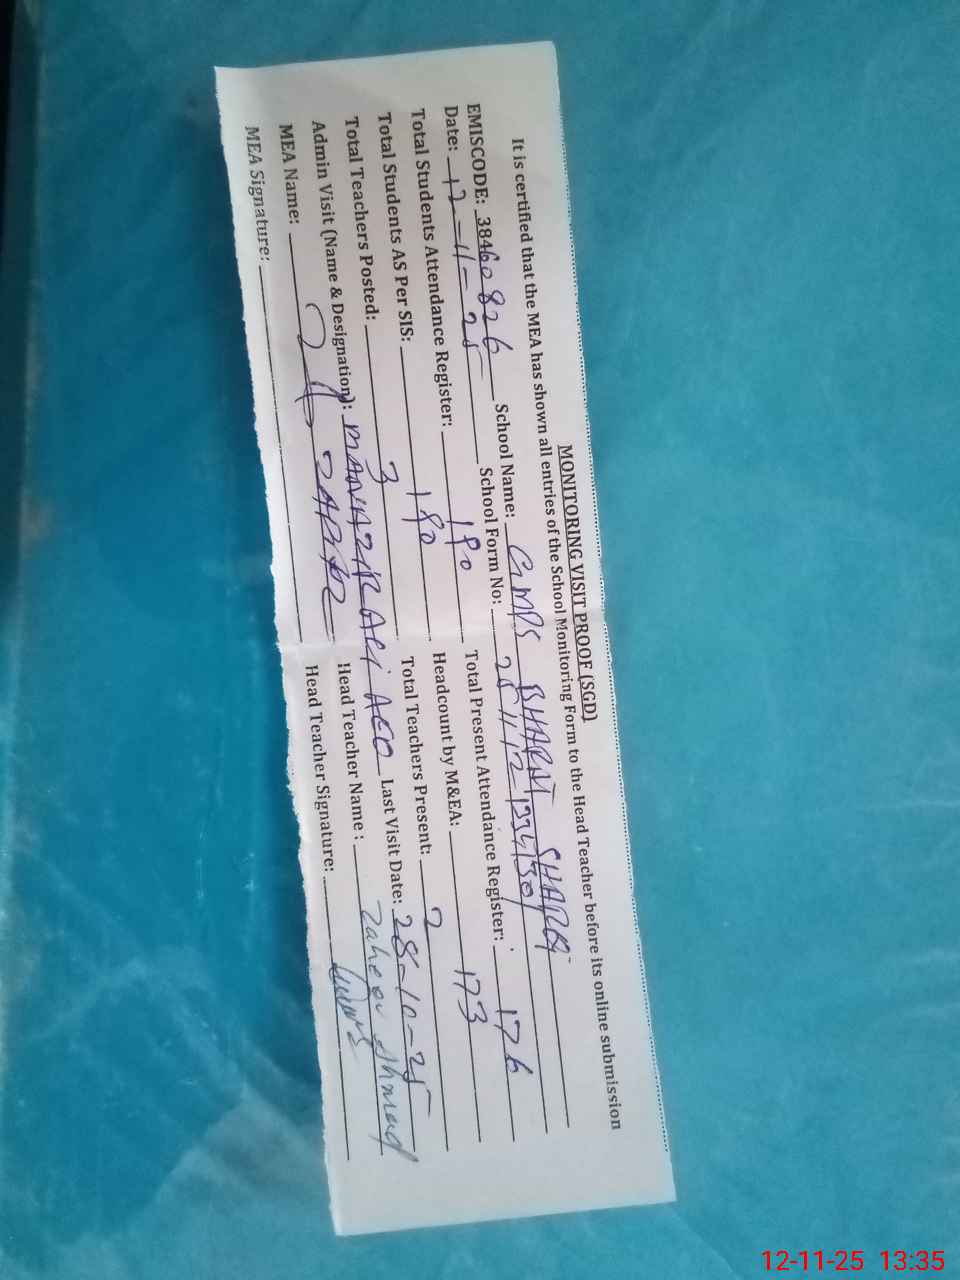 MONITORING VISIT PROOF (SGD)
It is certified that the MEA has shown all entries of the School Monitoring Form to the Head Teacher before its online submission
EMISCODE: 38460826 School Name: GMPS BHARAT SHARQI
Date: 12-11-25 School Form No: 251112133430
Total Students Attendance Register: 180 Total Present Attendance Register: 176
Total Students AS Per SIS: 180 Headcount by M&EA: 173
Total Teachers Posted: 3 Total Teachers Present: 2
Admin Visit (Name & Designation): AEO Last Visit Date: 28-10-25
MEA Name: Head Teacher Name : Zaheer Ahmad
MEA Signature: Head Teacher Signature:
12-11-25 13:35